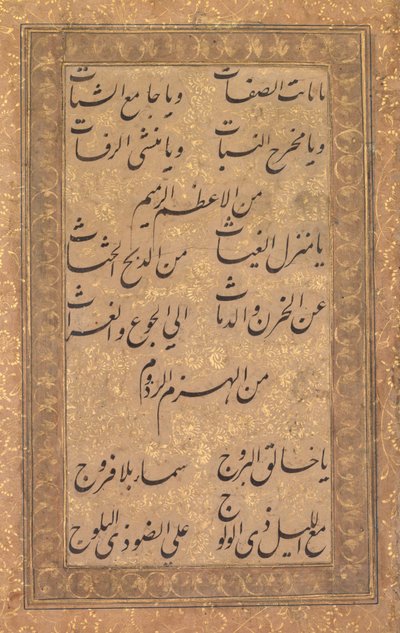 يا ثابت الصفات ويا جامع الشتات
ويا مخرج النبات ويا منشى الرفات
من الاعظم الرميم
يا منزل الغياث من الدلج الحثاث
عن الخزن والدماث الي الجوع والغراث
من الهزم الرذوم
يا خالق البروج سماء بلا فروج
مع الليل ذى الولوج علي الضوء ذى البلوج